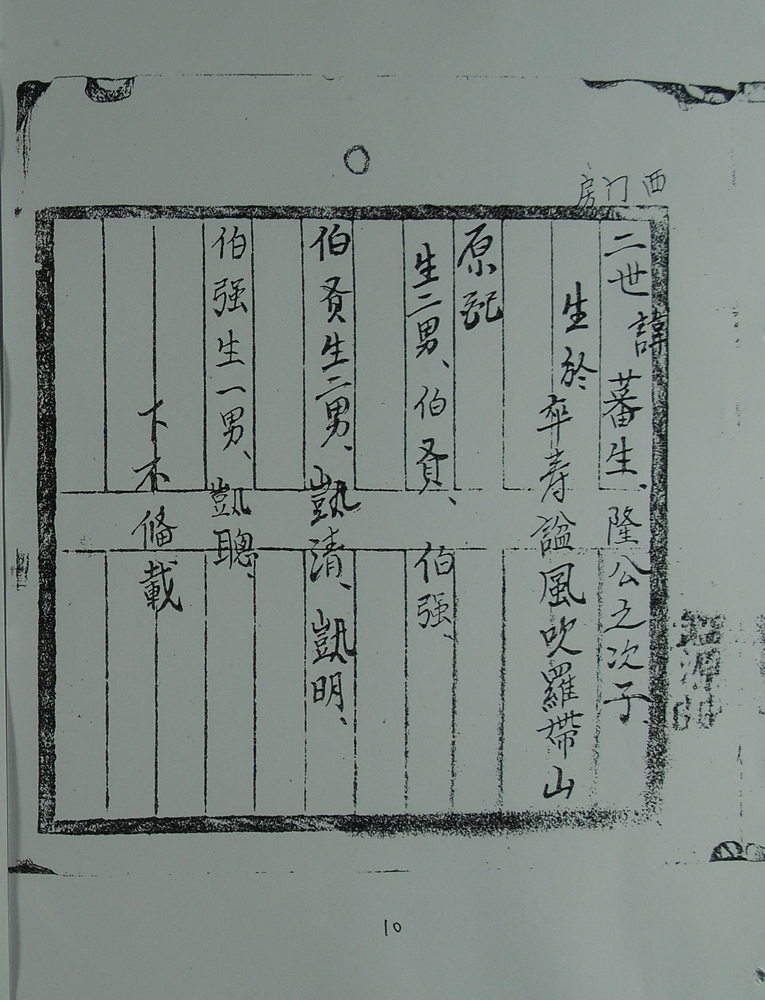 西门房
二世諱蕃生、隆公之次子
生於
卒寿謚風吹羅帶山
原記
生二男、伯賢、伯强、
伯賢生二男、凱清、凱明、
伯强生一男、凱聰、
下不偹載
10